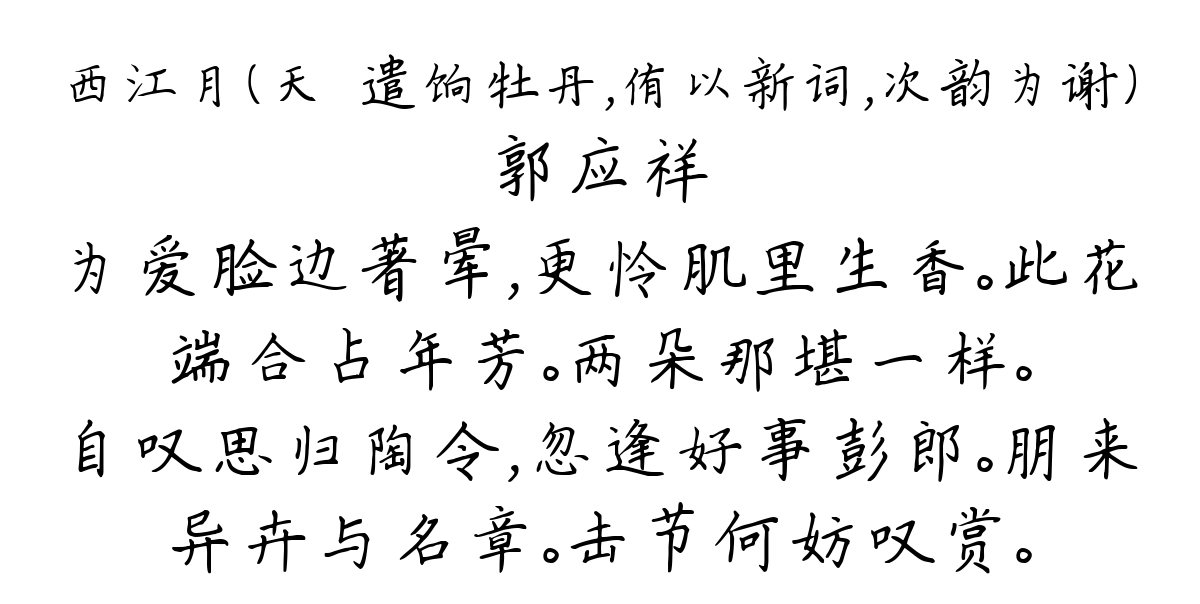 西江月(天 遣饷牡丹,侑以新词,次韵为谢)
郭应祥
为爱脸边著晕,更怜肌里生香。此花
端合占年芳。两朵那堪一样。
自叹思归陶令,忽逢好事彭郎。朋来
异卉与名章。击节何妨叹赏。